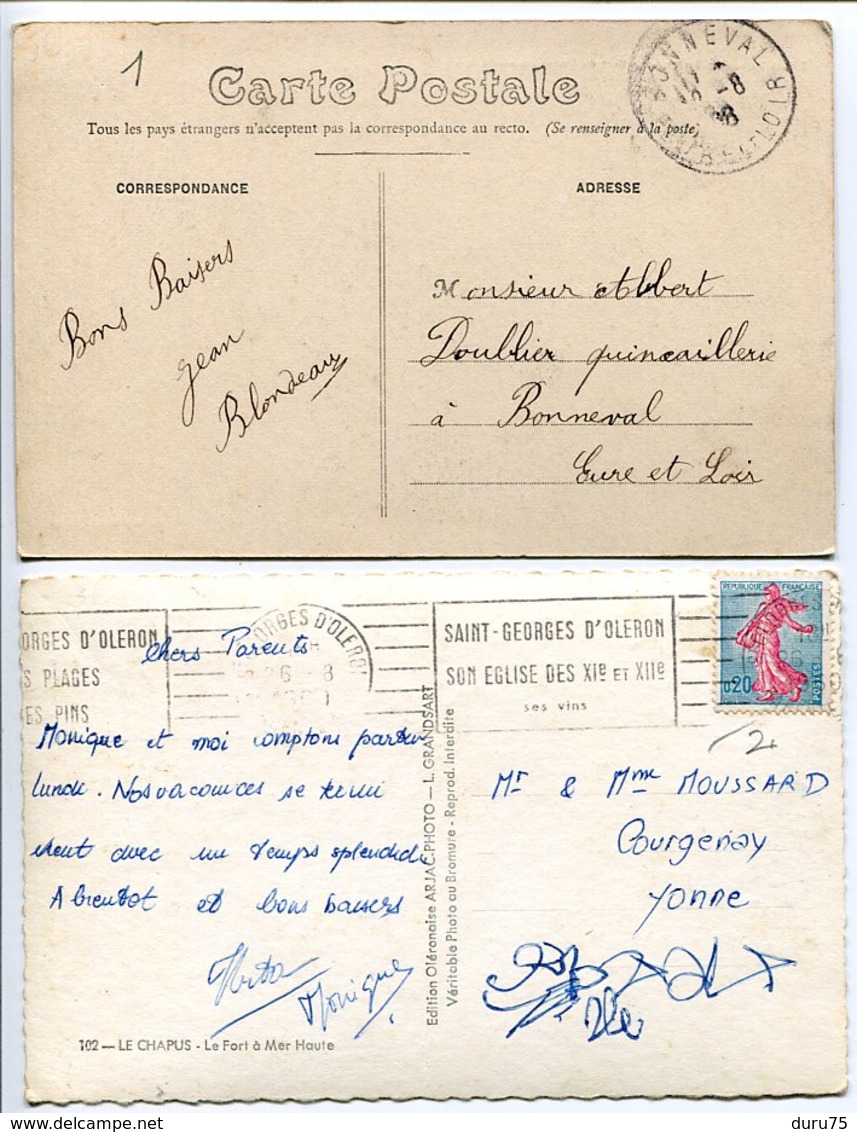 1
Carte Postale
BONNEVAL
-8
Tous les pays étrangers n'acceptent pas la correspondance au recto. (Se renseigner à la poste)
CORRESPONDANCE
Bons Baisers
Jean
Blondeau
ADRESSE
Monsieur Albert
Doublier quincaillerie
à Bonneval
Eure et Loir
ORGES D'OLERON
S PLAGES
ES PINS
ORGES D'OLERON
26 - 8
SAINT-GEORGES D'OLERON
SON EGLISE DES XIe ET XIIe
ses vins
REPUBLIQUE FRANÇAISE
0,20
POSTES
2
Chers Parents
Monique et moi comptons partir
lundi. Nos vacances se termi
nent avec un temps splendide
A bientot et bons baisers
Monique
102 — LE CHAPUS - Le Fort à Mer Haute
Edition Oléronaise ARJAC-PHOTO — L. GRANDSART
Véritable Photo au Bromure - Reprod. Interdite
Mr & Mme MOUSSARD
Courgenay
Yonne
duru75